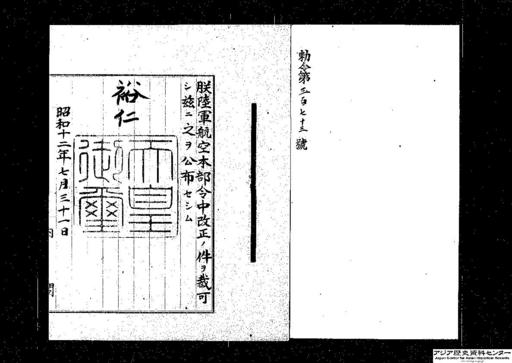 勅令第三百七十三號
朕陸軍航空本部令中改正ノ件ヲ裁可
シ茲ニ之ヲ公布セシム
裕仁
天皇御璽
昭和十二年七月三十一日
内閣
アジア歴史資料センター
Japan Center for Asian Historical Records